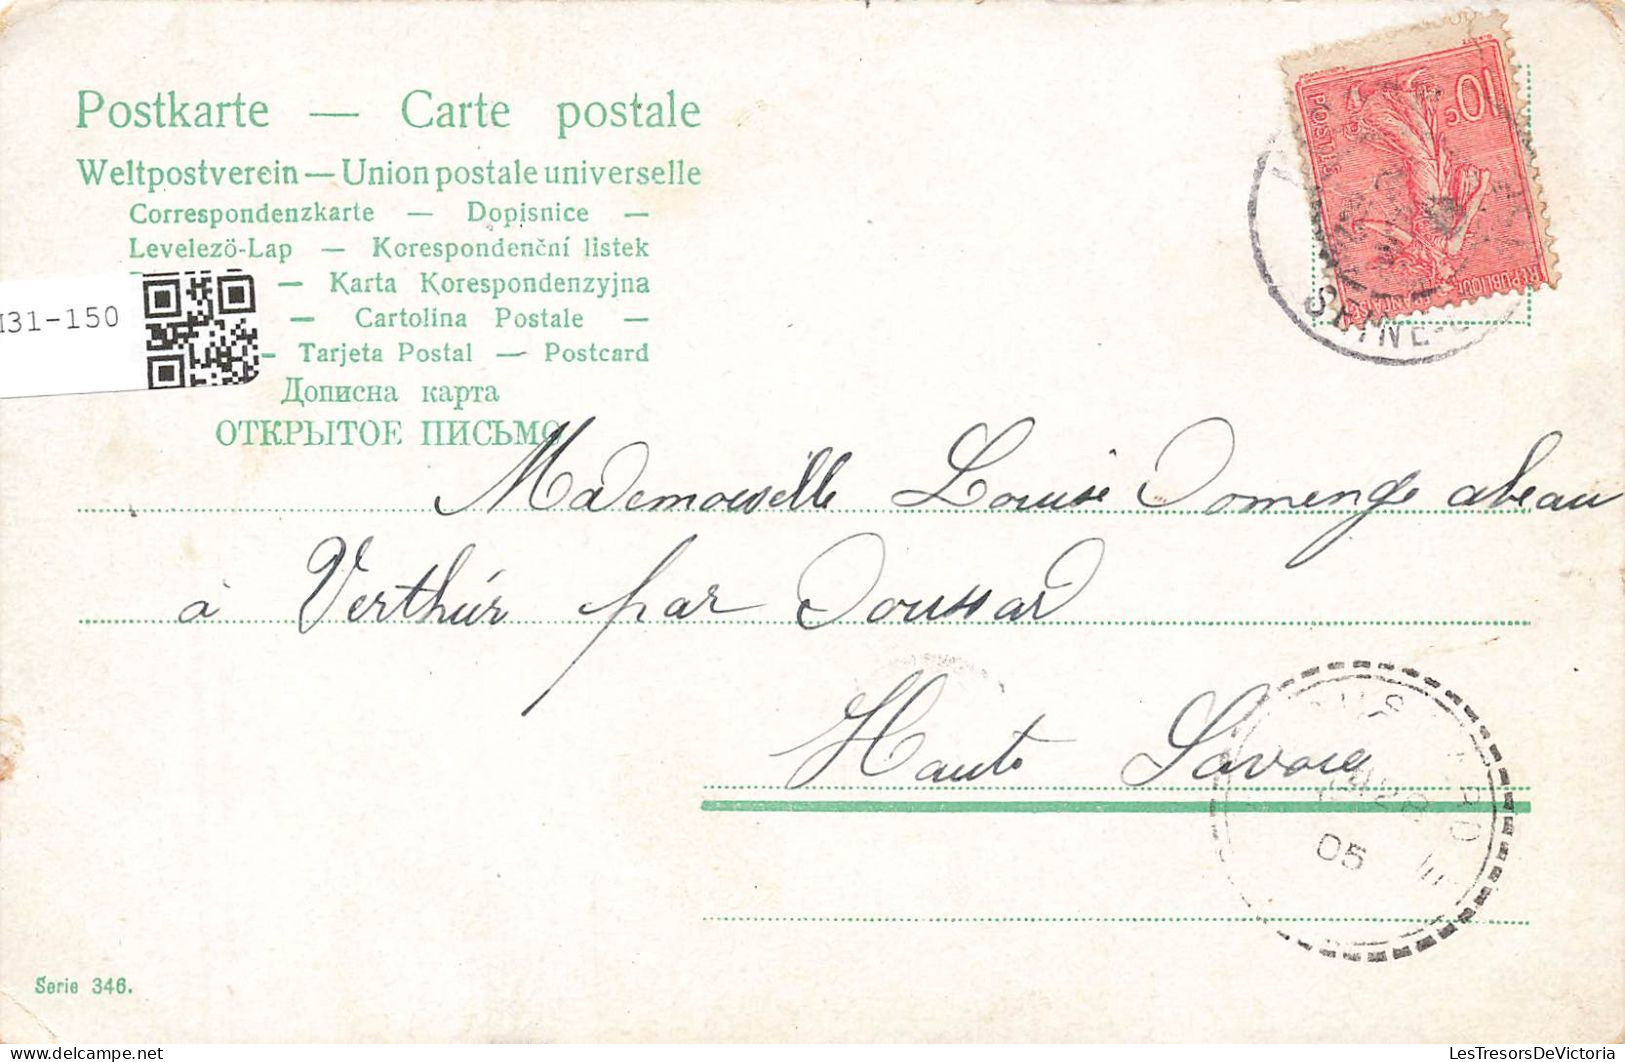 Postkarte — Carte postale
Weltpostverein — Union postale universelle
Correspondenzkarte — Dopisnice —
Levelező-Lap — Korespondenční lístek
— Karta Korespondenzyjna
— Cartolina Postale —
— Tarjeta Postal — Postcard
Дописна карта
ОТКРЫТОЕ ПИСЬМО
31-150
10c
POSTES
REPUBLIQUE
SEINE
Mademoiselle Louise Domenge
à Verthier par Doussard
Haute Savoie
05
Serie 346.
LesTresorsDeVictoria
delcampe.net